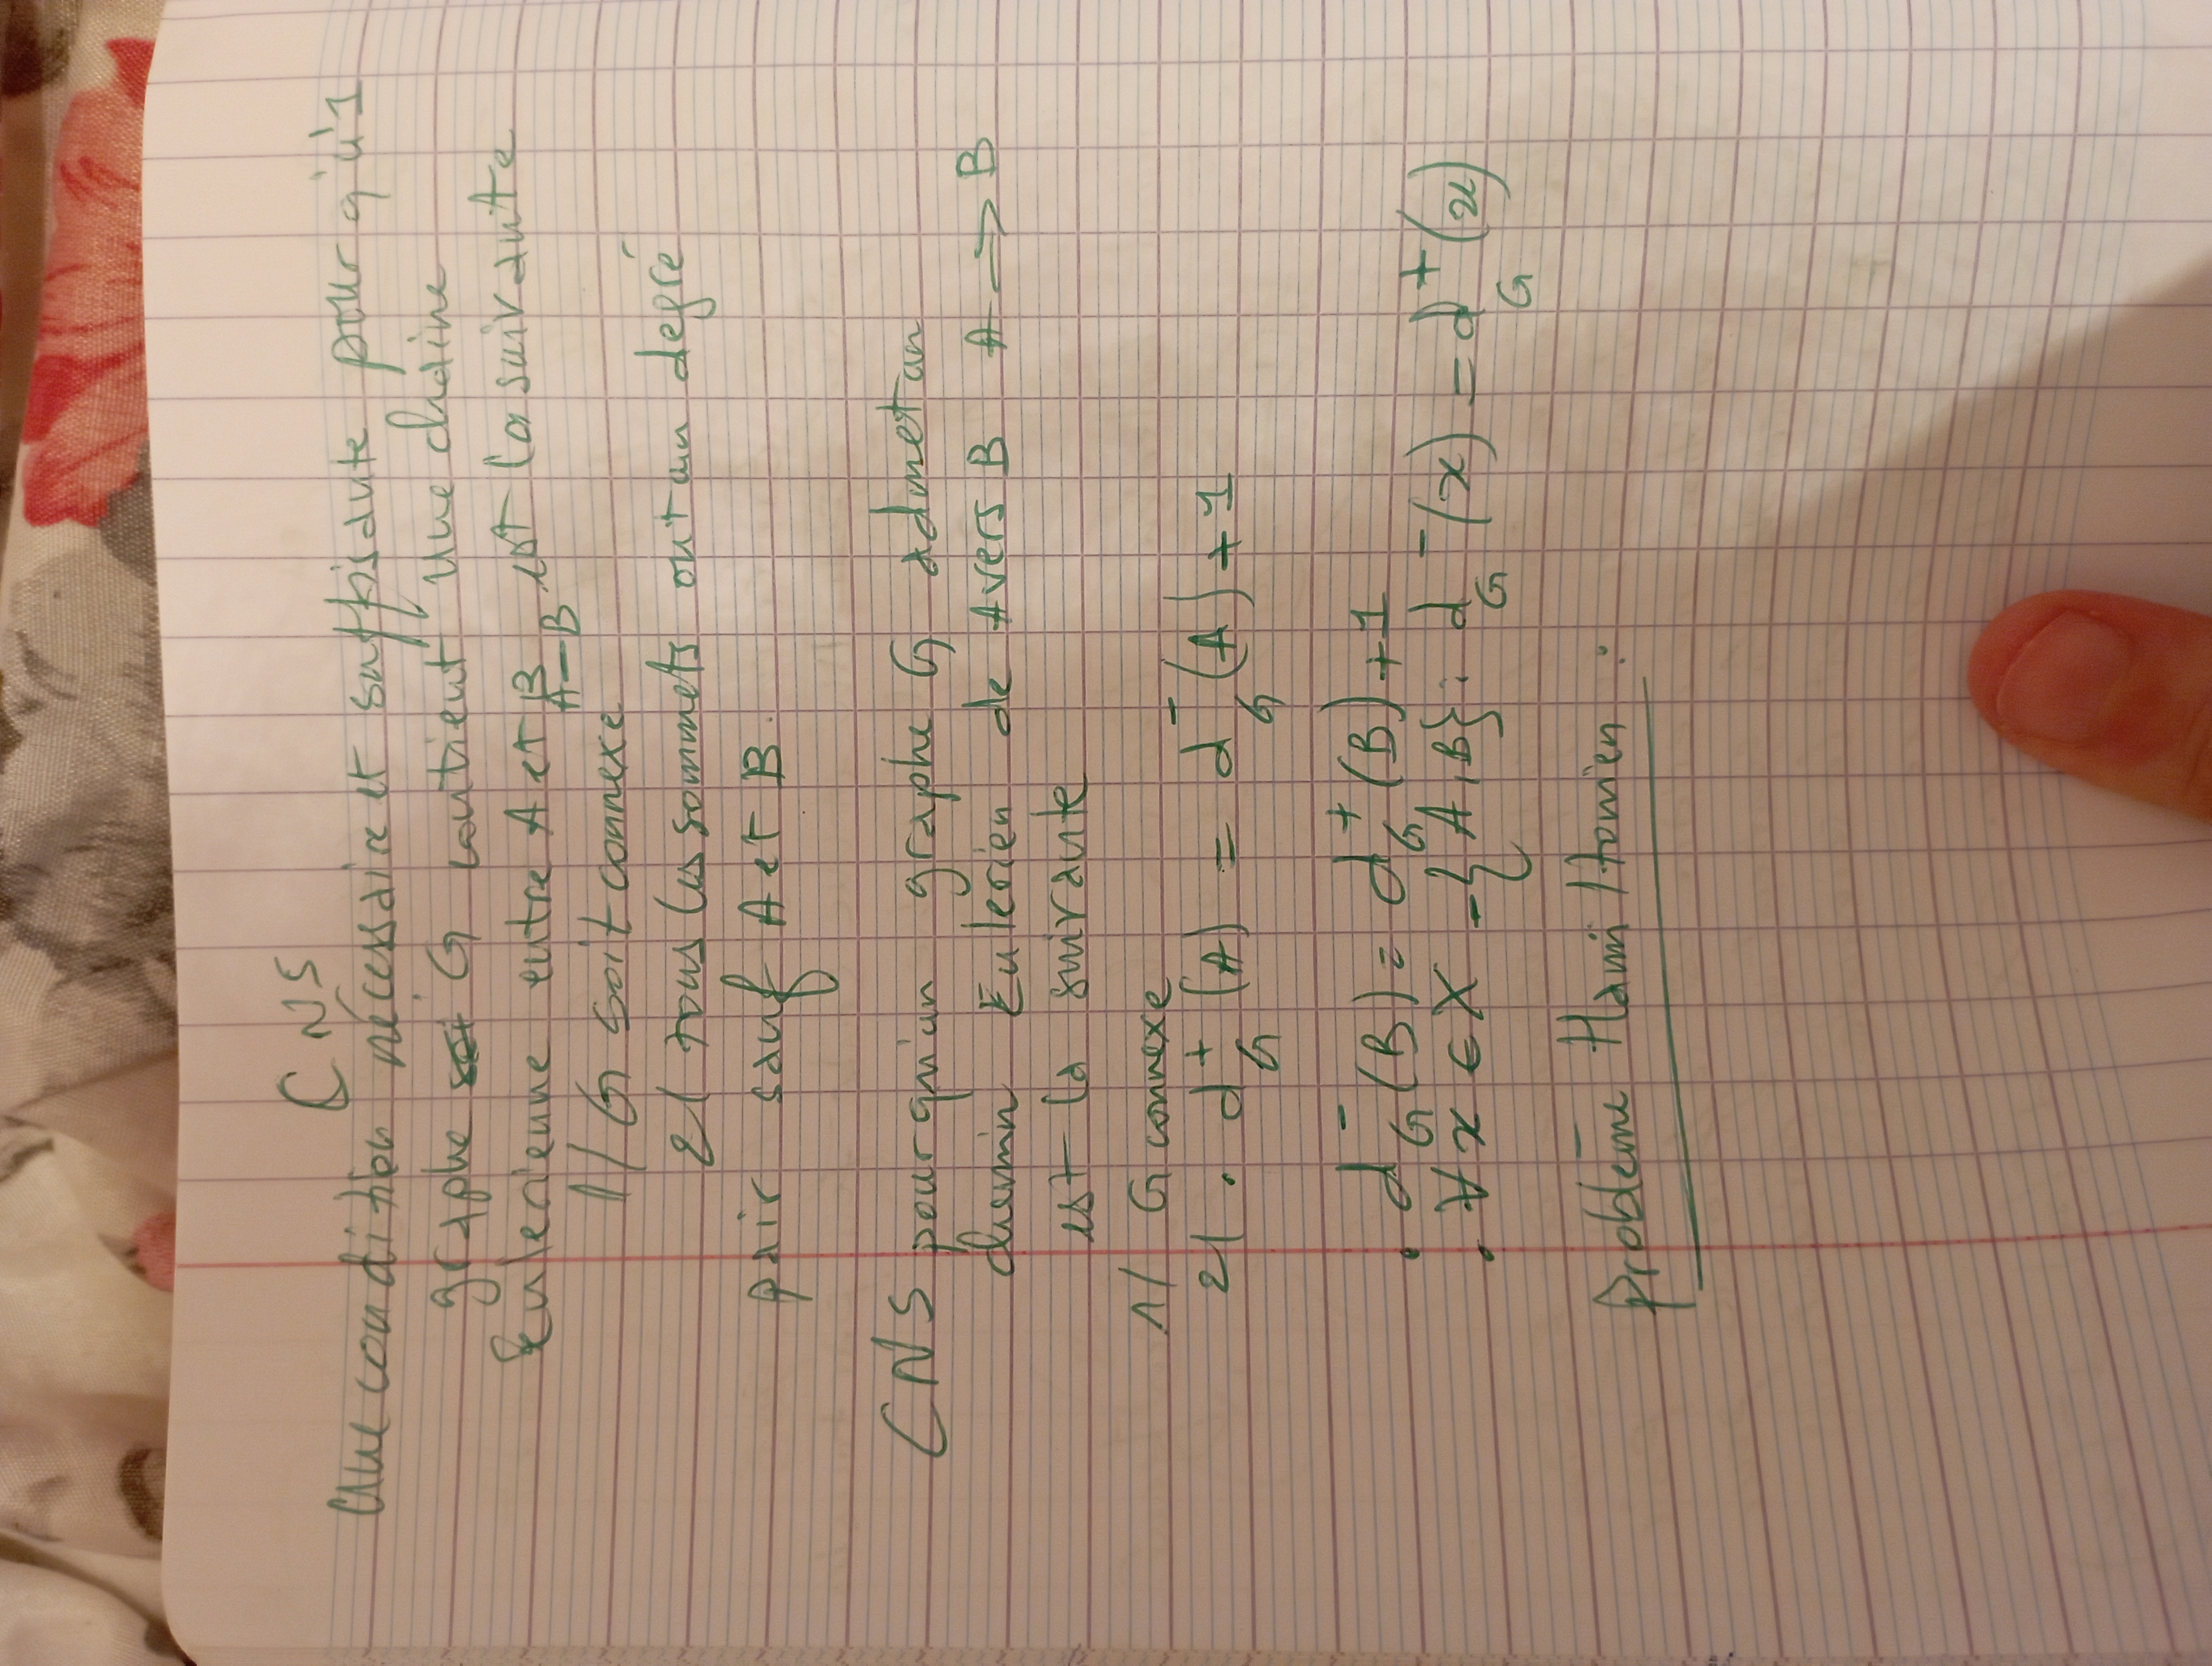 CNS
Une condition nécessaire et suffisante pour qu'1
graphe G contient une chaine
Eulerienne entre A et B est la suivante
A-B
1/ G soit connexe
2/ tous les sommets ont un degré
pair sauf A et B.
CNS pour qu'un graphe G admet un
chemin Eulerien de A vers B A → B
est la suivante
1/ G connexe
2/ • d⁺G (A) = d⁻G (A) + 1
• d⁻G (B) = d⁺G (B) + 1
• ∀ x ∈ X - {A, B} : d⁻G (x) = d⁺G (x)
Problème Hamiltonien :